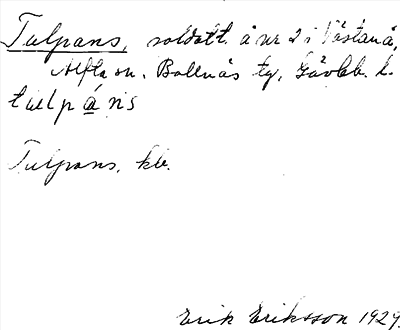 Tulpans, soldatt. å nr 2 i Västanå,
Alfta sn. Bollnäs tg, Gävleb. l.
tulpàns
Tulpans, kb.
Erik Eriksson 1929.